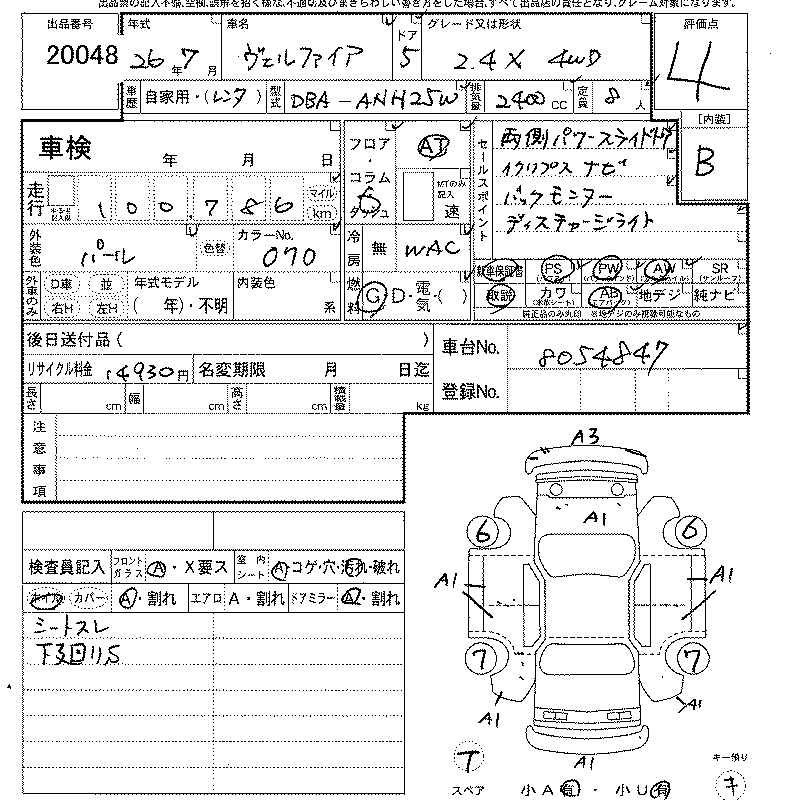 出品票の記入不備、空欄、誤解を招く様な、不適切及びまぎらわしい書き方をした場合、すべて出品店の責任となり、クレーム対象になります。
出品番号 年式 車名 ドア グレード又は形状 評価点
20048 26年7月 ヴェルファイア 5 2.4X 4WD 4
車歴 自家用・(レンタ) 型式 DBA-ANH25W 排気量 2400CC 定員 8人
[内装]
B
車検 年 月 日
フロア・コラム ダッシュ AT MTのみ記入 速
セールスポイント
両側パワースライドドア
イクリプスナビ
バックモニター
ディスチャージライト
走行 100,786 マイル km
外装色 パール 色替 カラーNo. 070
冷房 無 WAC
外車のみ D車 並 右H 左H 年式モデル ( 年)・不明 内装色 系
燃料 G D・電気・( )
新車保証書 PS PW AW SR (サンルーフ)
取説 カワ AB 地デジ 純ナビ
純正品のみ丸印 ※地デジのみ視聴可能なもの
後日送付品 ( )
車台No. 8054847
リサイクル料金 14930円 名変期限 月 日迄
登録No.
長さ cm 幅 cm 高さ cm 積載量 kg
注意事項
A3
A1
6 6
A1 A1
7 7
A1 A1
A1
検査員記入 フロントガラス A・X要ス 室内シート A・コゲ・穴・汚れ・破れ
ホイル カバー A・割れ エアロ A・割れ ドアミラー A・割れ
シートスレ
下回りS
T
スペア 小A有・小U有
キー預り
キ